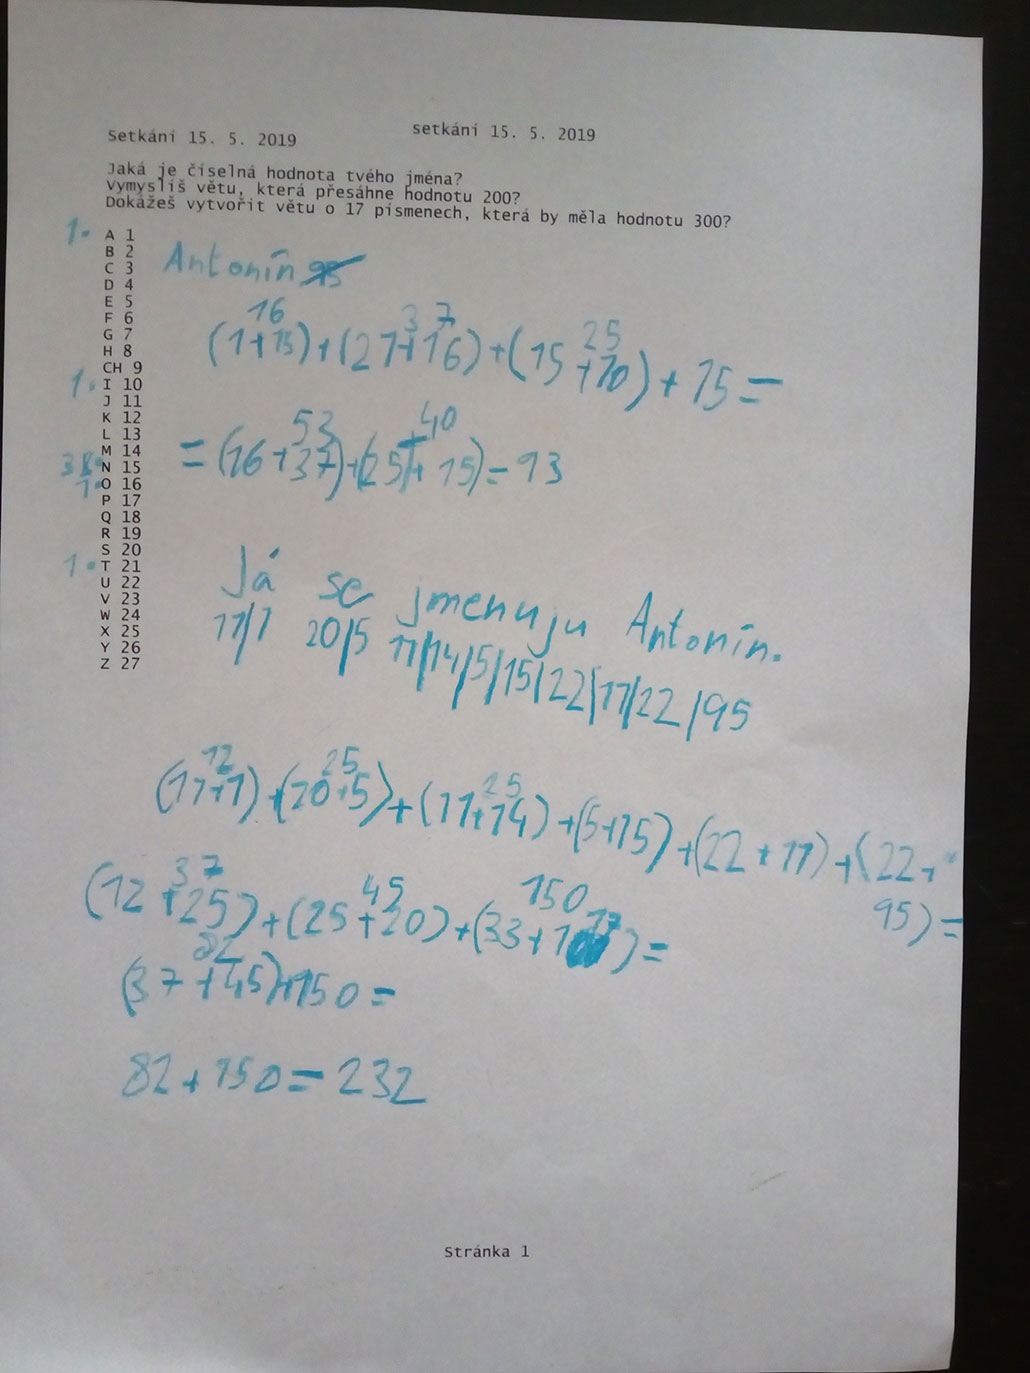 Setkání 15. 5. 2019 setkání 15. 5. 2019
Jaká je číselná hodnota tvého jména?
Vymyslíš větu, která přesáhne hodnotu 200?
Dokážeš vytvořit větu o 17 písmenech, která by měla hodnotu 300?
1. A 1
B 2
C 3
D 4
E 5
F 6
G 7
H 8
CH 9
1. I 10
J 11
K 12
L 13
M 14
3 N 15
1. O 16
P 17
Q 18
R 19
S 20
1. T 21
U 22
V 23
W 24
X 25
Y 26
Z 27
Antonín
16 37 25
(1+15)+(21+16)+(15+10)+15=
53 40
=(16+37)+(25+15)=93
Já se jmenuju Antonín.
11/1 20/5 11/14/5/15/22/11/22/95
12 25 25
(11+1)+(20+5)+(11+14)+(5+15)+(22+11)+(22+
95)=
37 45 150
(12+25)+(25+20)+(33+117)=
82
(37+45)+150=
82+150=232
Stránka 1